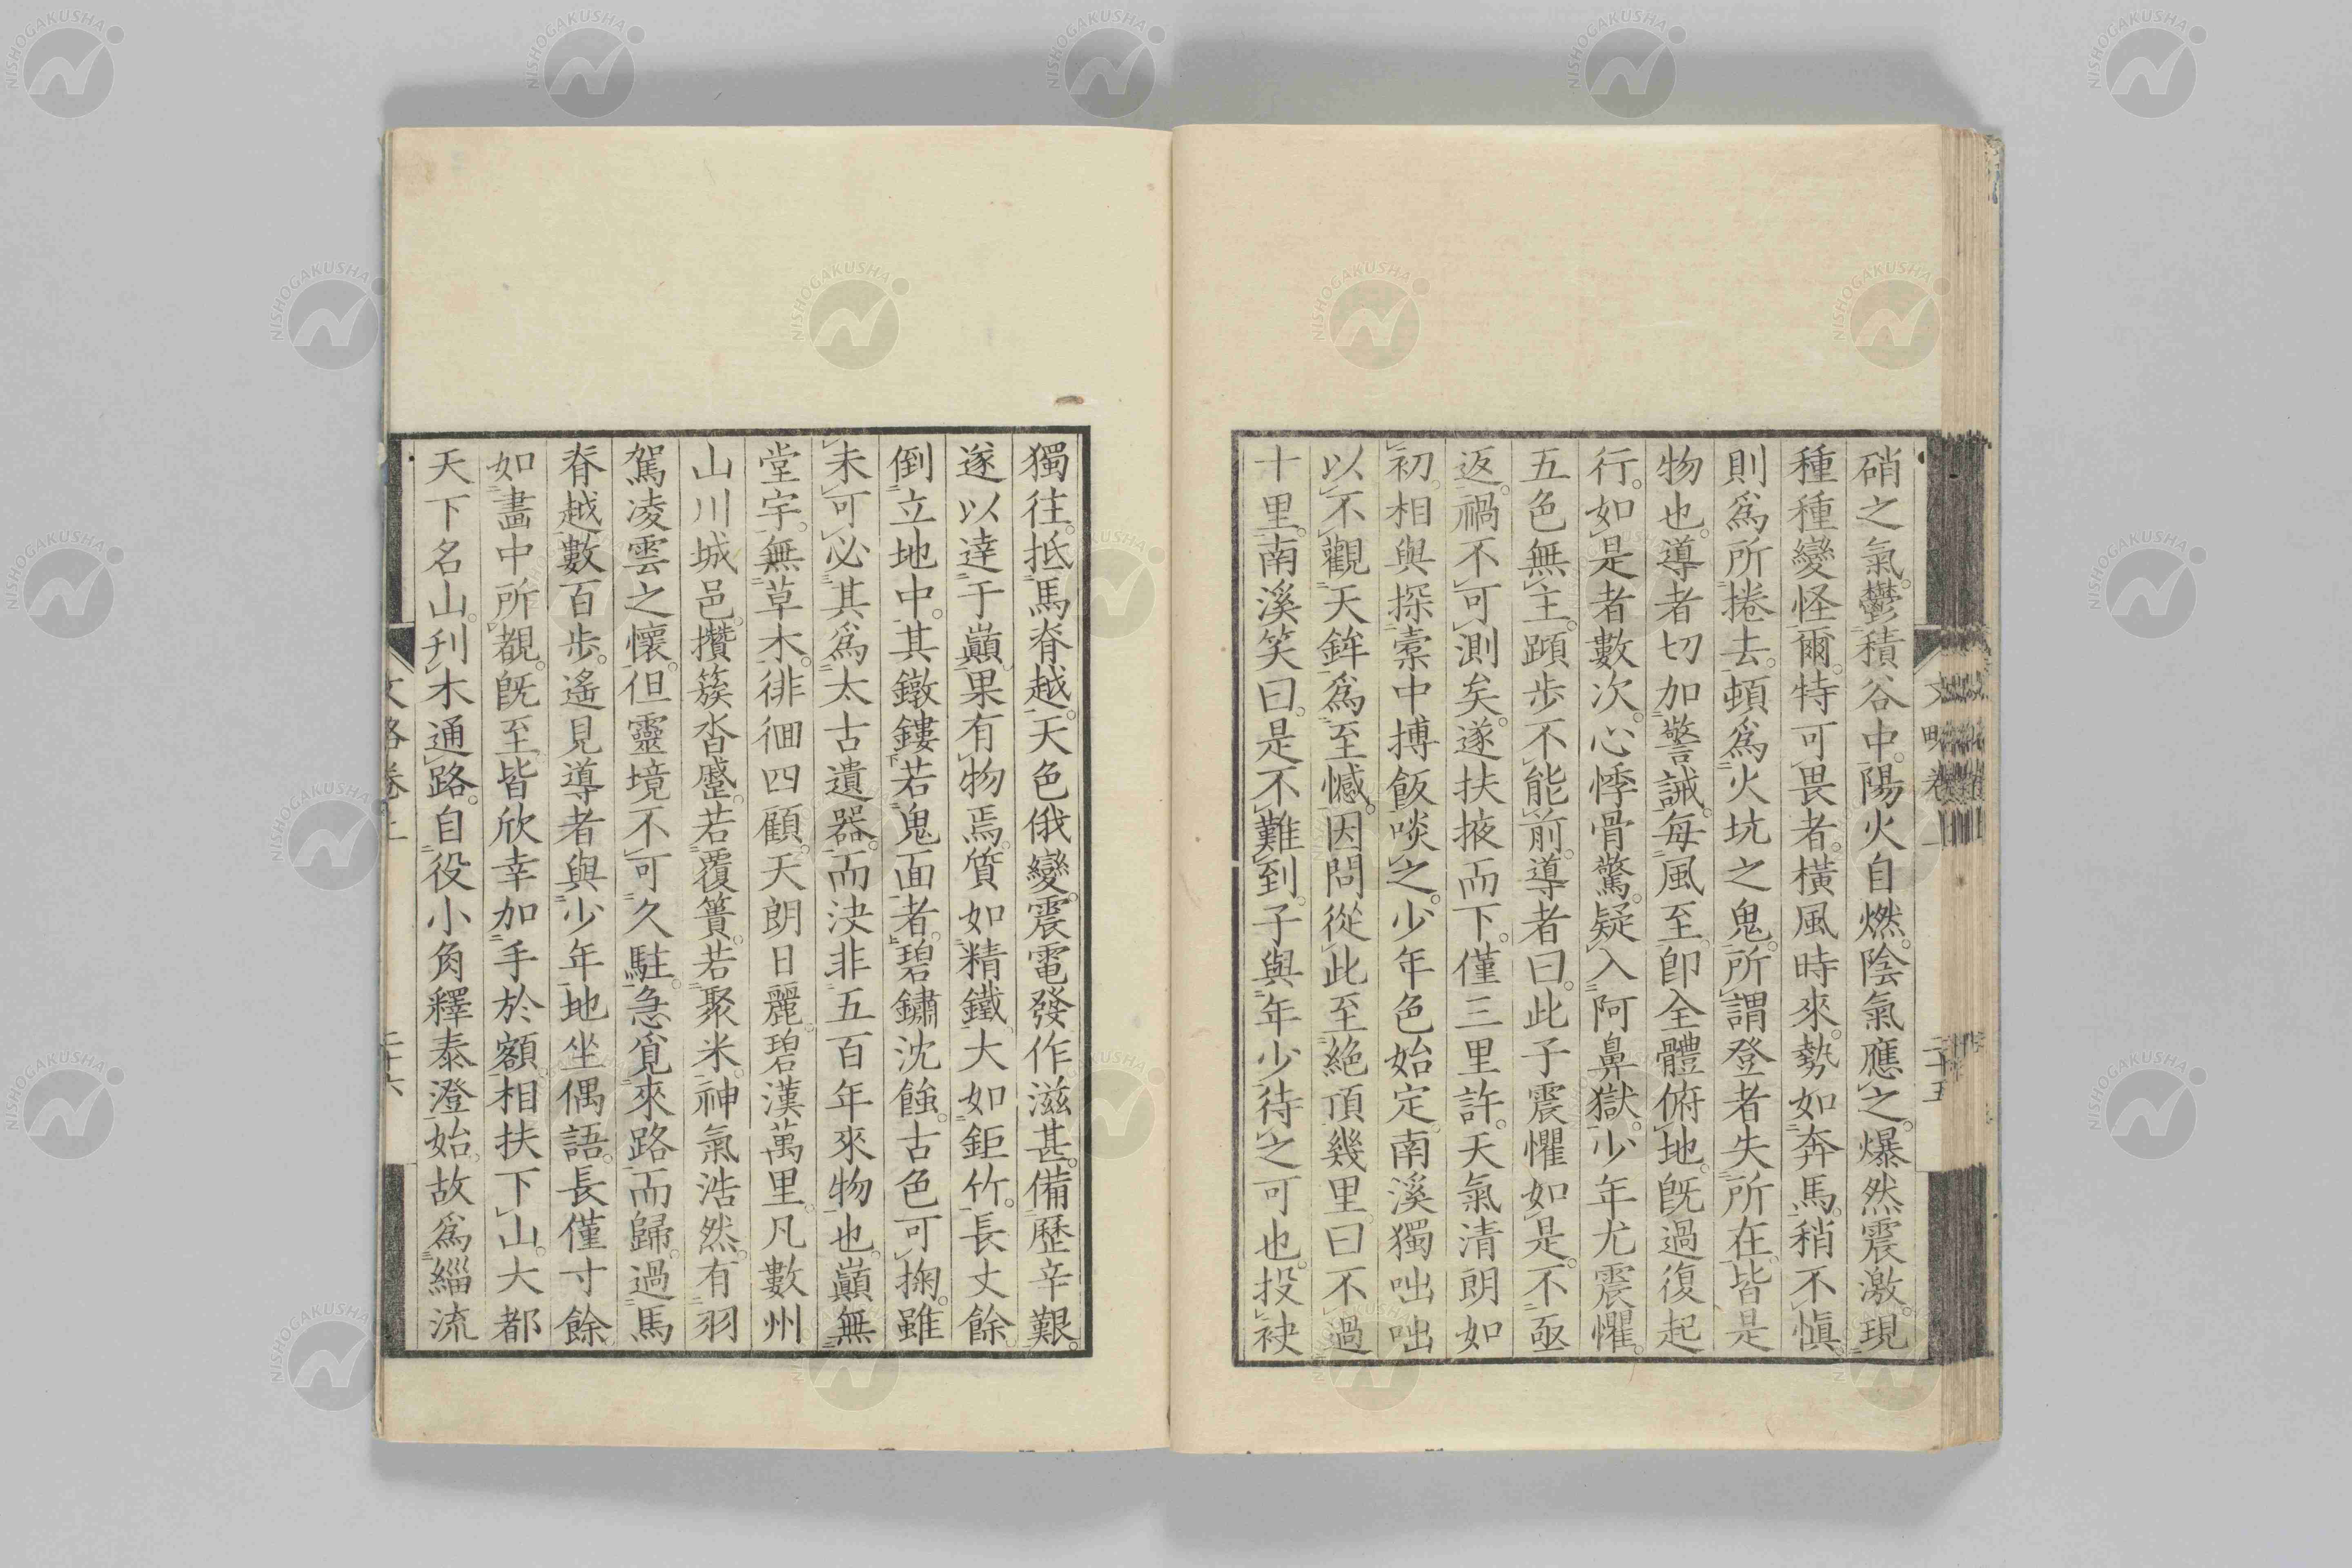 硝之氣。鬱積谷中。陽火自燃。陰氣應之。爆然震激。現
種種變怪爾。特可畏者。橫風時來。勢如奔馬。稍不愼
則爲所捲去。頓爲火坑之鬼。所謂登者失所在。皆是
物也。導者切加警誡。每風至。卽全體俯地。旣過復起
行。如是者數次。心悸骨驚。疑入阿鼻獄。少年尤震懼。
五色無主。踬步不能前。導者曰。此子震懼如是。不亟
返。禍不可測矣。遂扶掖而下。僅三里許。天氣清朗如
初。相與探橐中搏飯啖之。少年色始定。南溪獨咄咄
以不觀天鉾爲至憾。因問從此至絶頂幾里。曰不過
十里。南溪笑曰。是不難到。子與年少待之可也。投袂
獨往。抵馬脊越。天色俄變。震電發作滋甚。備歷辛艱。
遂以達于巓。果有物焉。質如精鐵。大如鉅竹。長丈餘。
倒立地中。其鐓鏤若鬼面者。碧鏽沈蝕。古色可掬。雖
未可必其爲太古遺器。而決非五百年來物也。巓無
堂宇。無草木。徘徊四顧。天朗日麗。碧漢萬里。凡數州
山川城邑。攢簇沓蹙。若覆簣。若聚米。神氣浩然。有羽
駕凌雲之懷。但靈境不可久駐。急覓來路而歸。過馬
脊越數百步。遙見導者與少年地坐偶語。長僅寸餘。
如畫中所覩。旣至。皆欣幸加手於額。相扶下山。大都
天下名山。刋木通路。自役小角釋泰澄始。故爲緇流
文略卷上
二十六
二十五
NISHOGAKUSHA